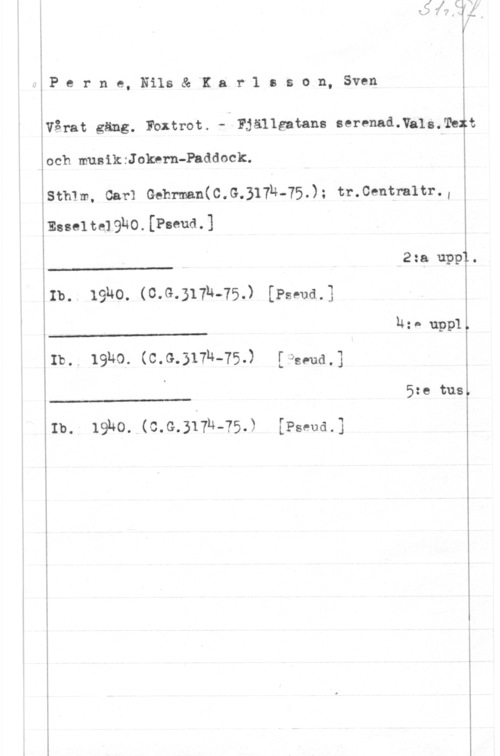 P e r n e, Nils & K a r l s s o n, Sven
Vårat gäng. Foxtrot. - Fjällgatans serenad.Vals.Text
och musik:Jokern-Paddock.
Sthlm, Carl Gehrman(C.G.3174-75.); tr.Centraltr.,
Esselte1940.[Pseud.]
2:a uppl.
Ib. 1940. (C.G.3174-75.) [Pseud.]
4:e uppl.
Ib. 1940. (C.G.3174-75.) [Pseud.]
5:e tus.
Ib. 1940. (C.G.3174-75.) [Pseud.]